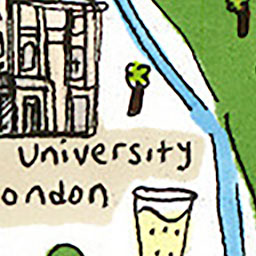 University
ondon